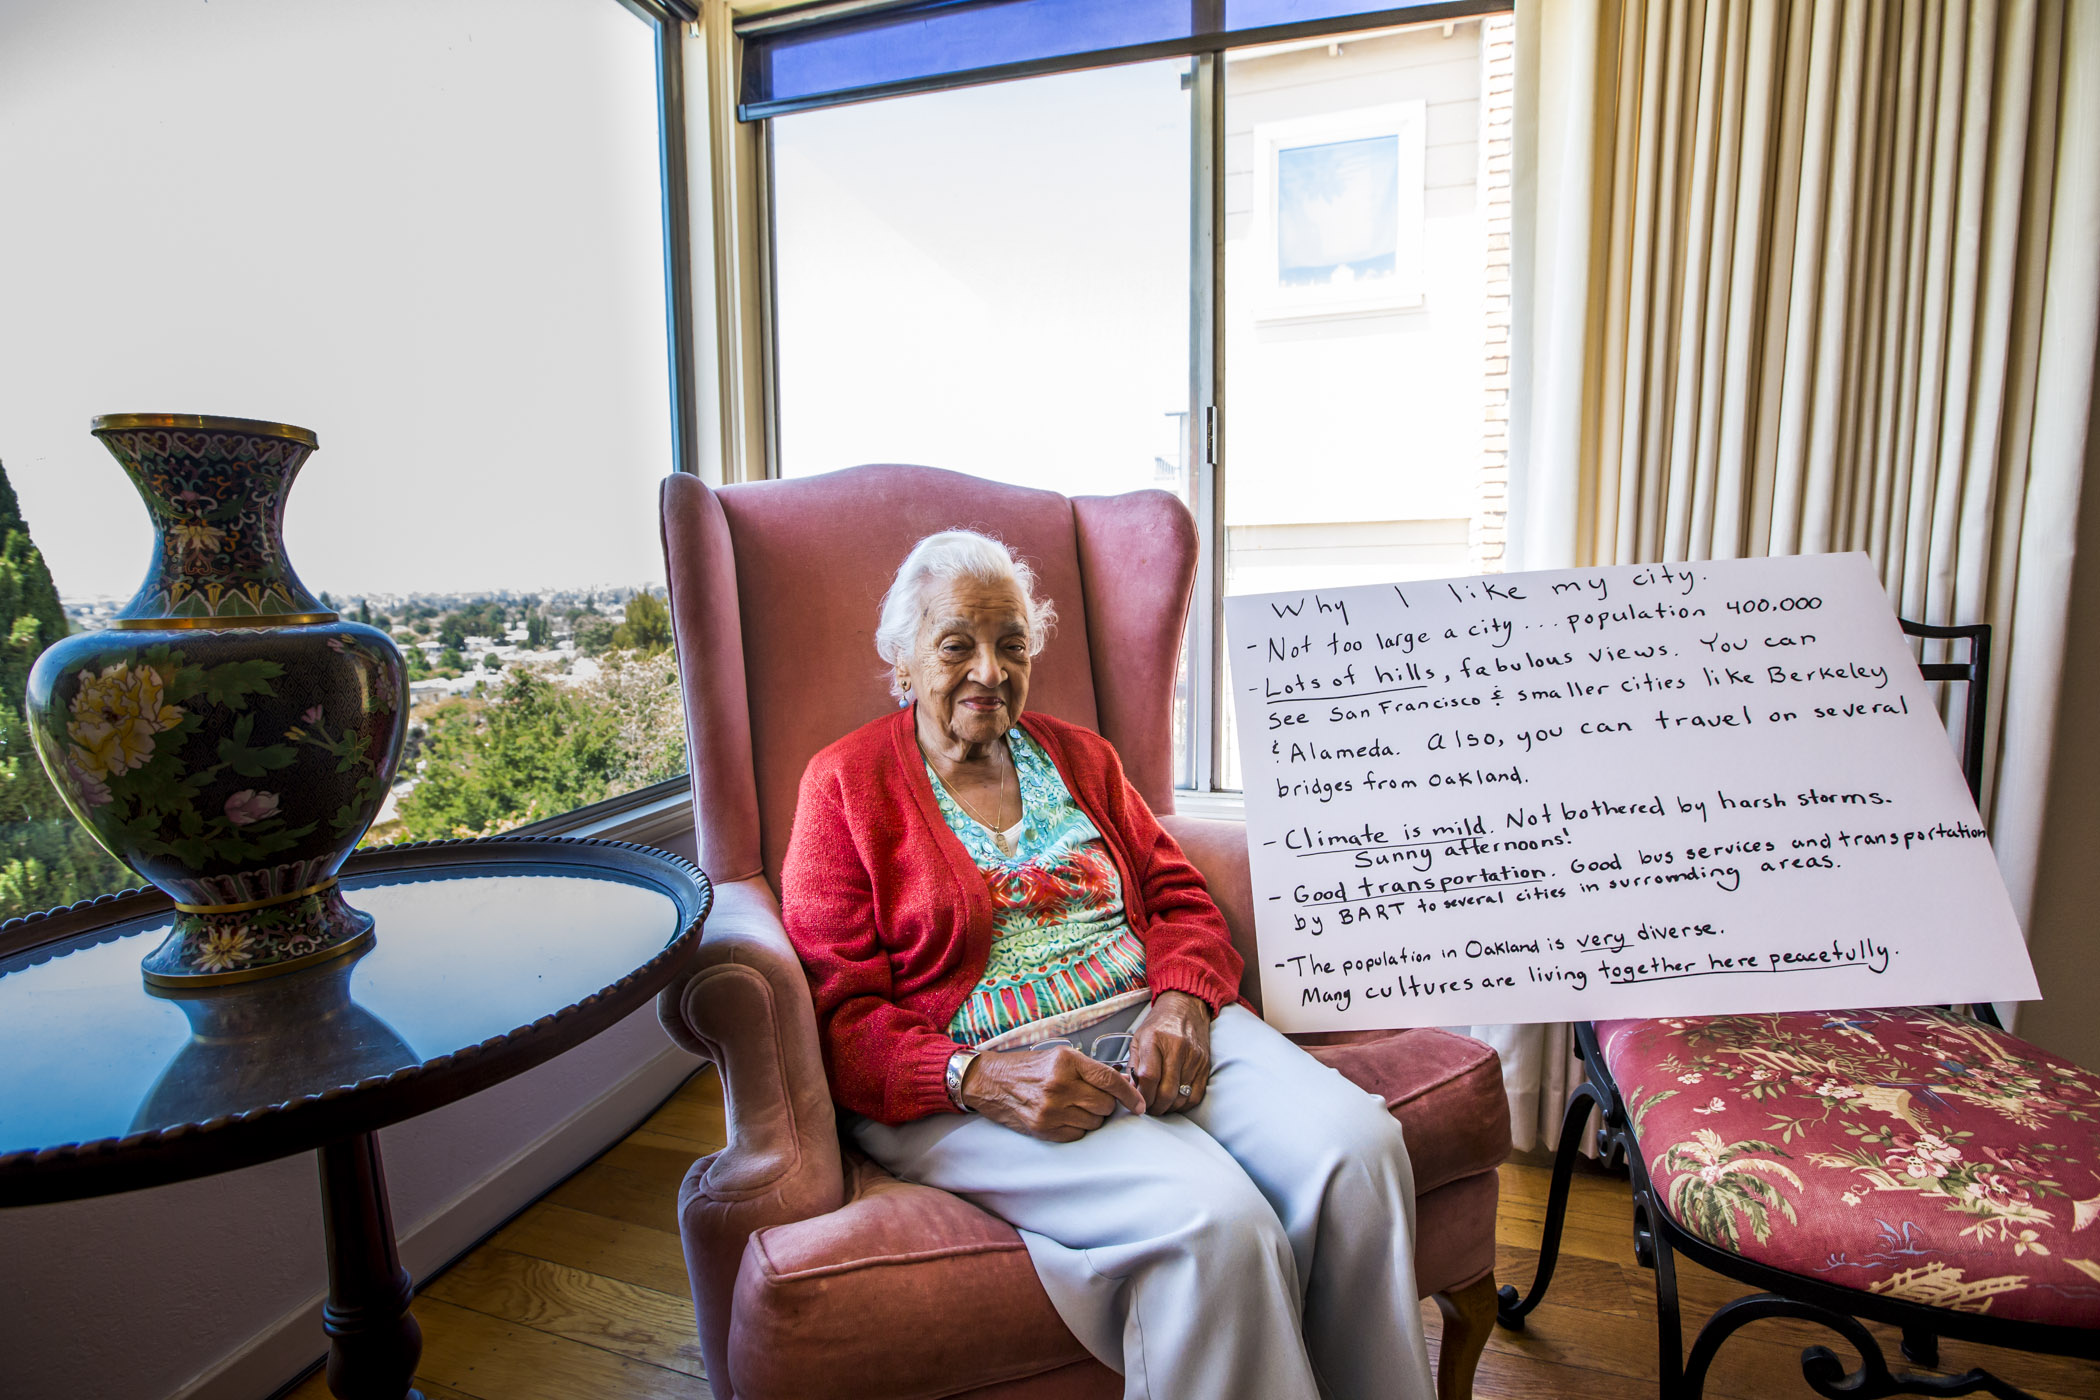 Why I like my city.
- Not too large a city ... population 400,000
- Lots of hills, fabulous views. You can
see San Francisco & smaller cities like Berkeley
& Alameda. Also, you can travel on several
bridges from Oakland.
- Climate is mild. Not bothered by harsh storms.
Sunny afternoons!
- Good transportation. Good bus services and transportation
by BART to several cities in surrounding areas.
- The population in Oakland is very diverse.
Many cultures are living together here peacefully.